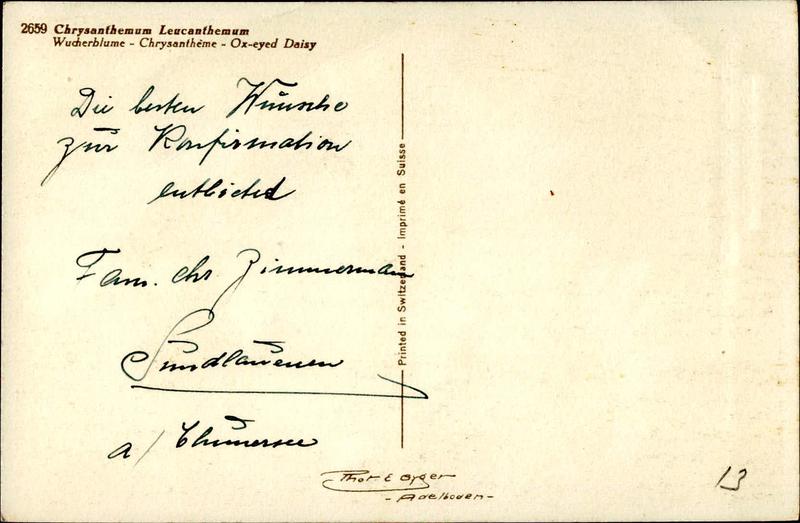 2659 Chrysanthemum Leucanthemum
Wucherblume - Chrysanthème - Ox-eyed Daisy
Die besten Wünsche
zur Konfirmation
entbietet
Fam. Chr. Zimmermann
Sundlauenen
a/ Thunersee
Printed in Switzerland - Imprimé en Suisse
Phot E Gyger
- Adelboden -
13